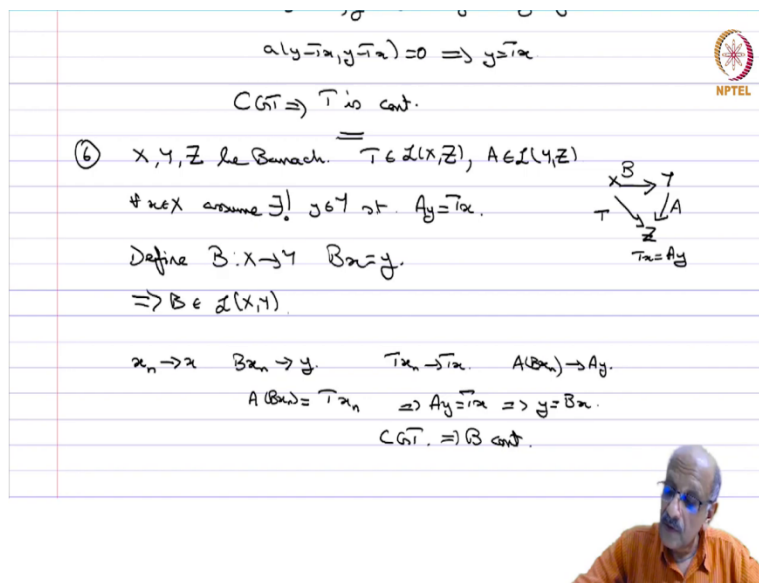 a(y-Tx, y-Tx)=0 => y=Tx
CGT => T is cont.
NPTEL
⑥ X, Y, Z be Banach. T ∈ ℒ(X,Z), A ∈ ℒ(Y,Z)
∀ x∈X assume ∃! y∈Y st. Ay=Tx.
X B→ Y
T A
Z
Tx=Ay
Define B: X→Y Bx=y.
=> B ∈ ℒ(X,Y).
xₙ→x Bxₙ→y. Txₙ→Tx. A(Bxₙ)→Ay.
A(Bxₙ)=Txₙ => Ay=Tx => y=Bx.
CGT. => B cont.